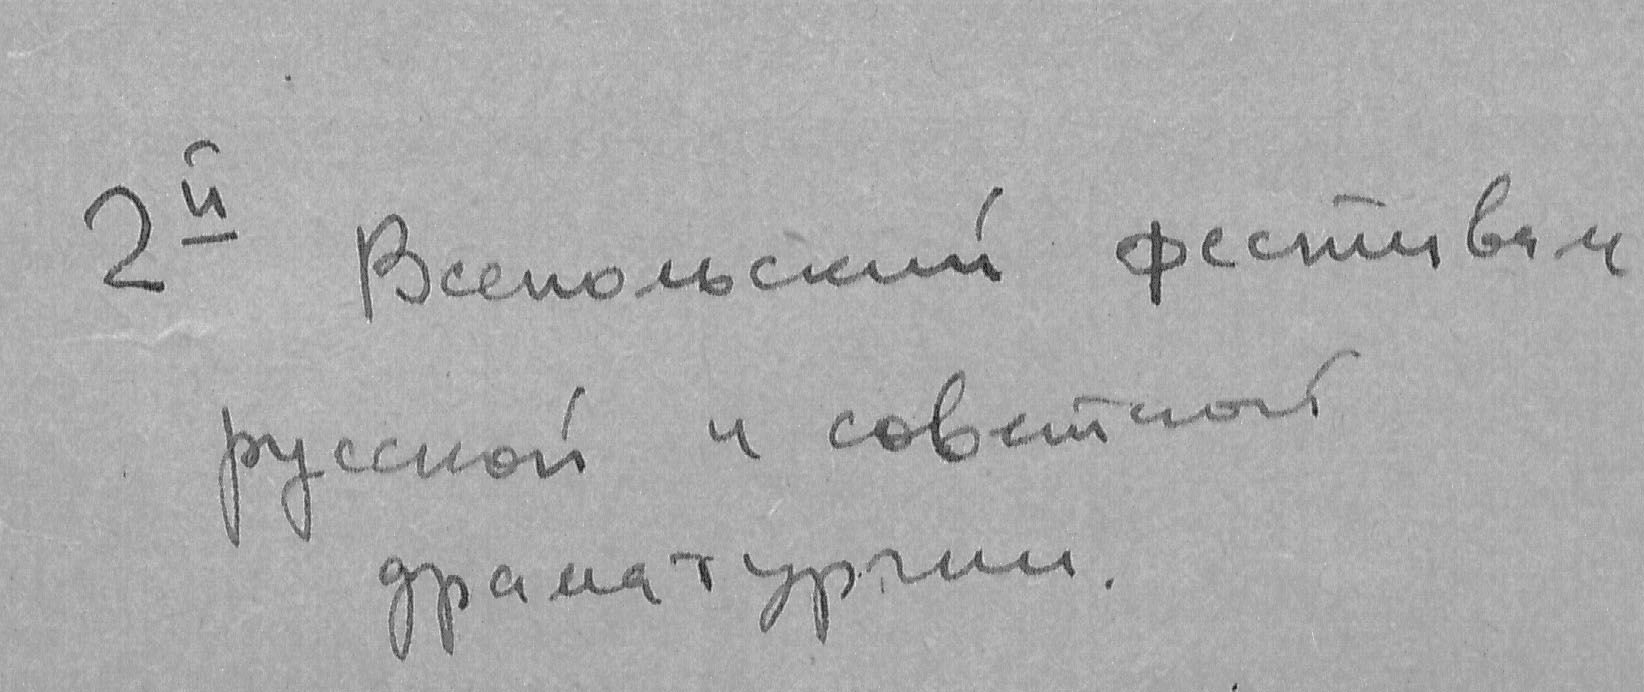 2й Всепольский фестивал
русской и советской
драматургии.